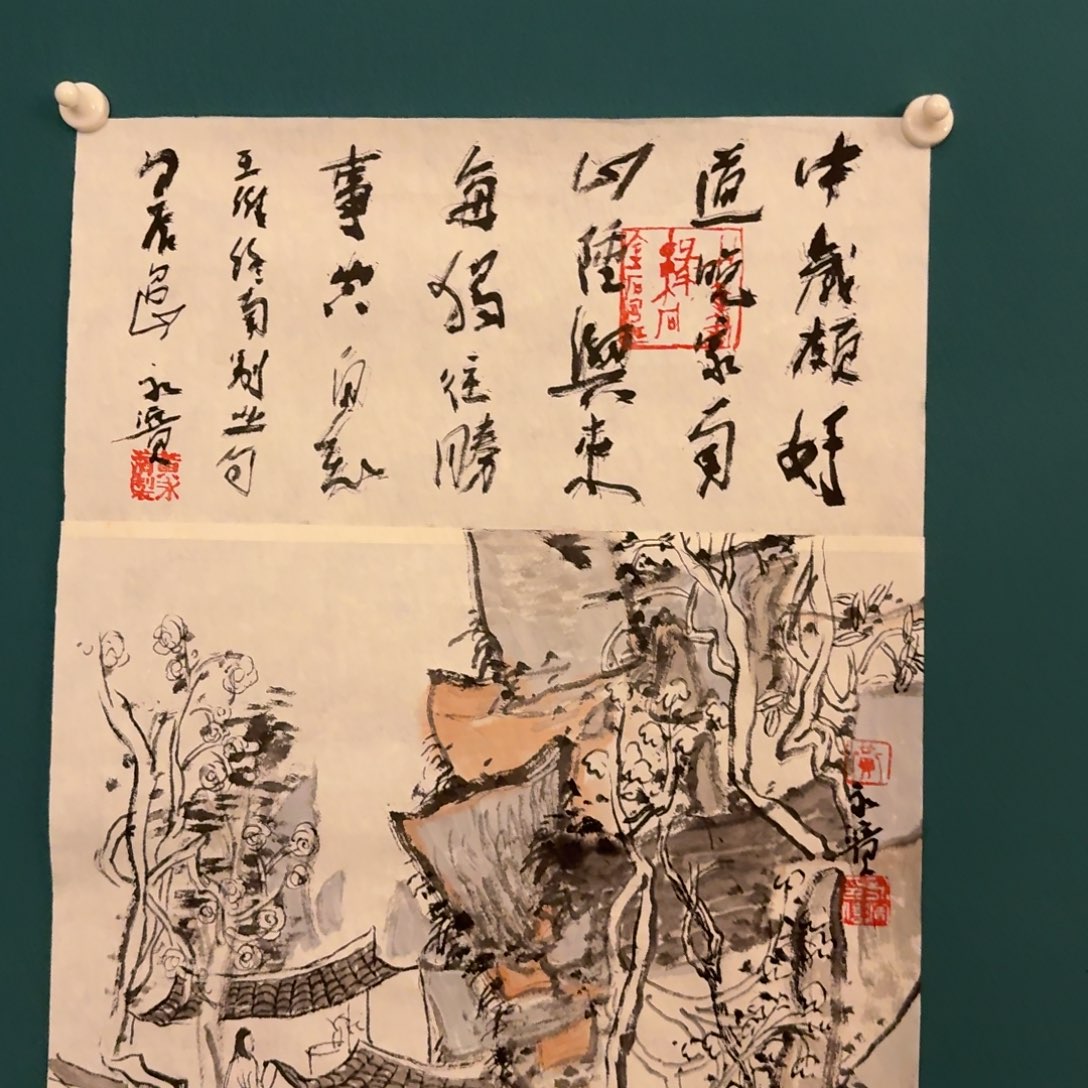 中歲頗好
道晚家南
山陲興來
每獨往勝
事空自知
王維終南別业句
甲辰
永
永